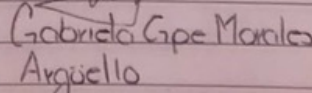 Gabriela Gpe Morales
Argüello